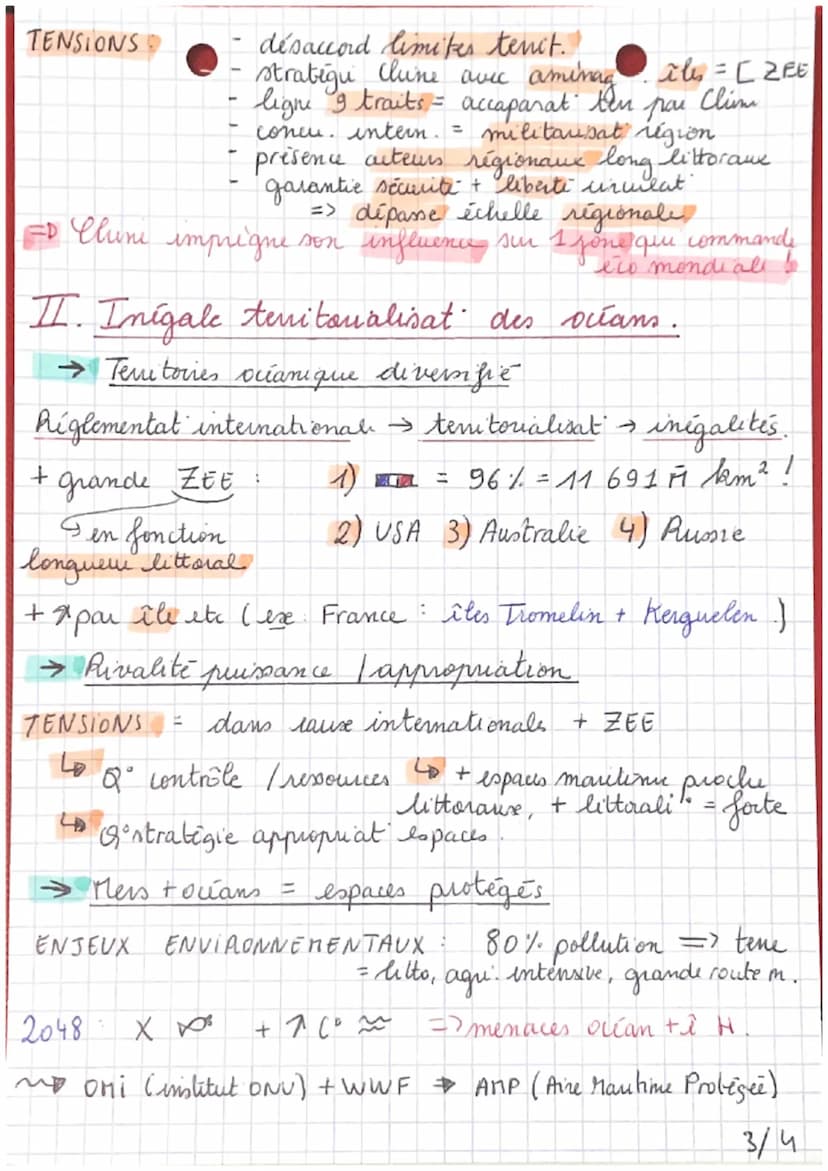 TENSIONS : - désaccord limites territ.
- stratégi Chine avec aménag. îles = [ ZEE
- ligne 9 traits = accaparat° terr par Chine
- concu. intern. = militarisat° région
- présence acteurs régionaux long littoraux
- garantie sécurité + liberté circulat°
=> dépasse échelle régionale
=> Chine imprègne son influence sur 1 zone qui commande
éco mondiale !
II. Inégale territorialisat° des océans.
→ Territoires océanique diversifié
Réglementat° internationale → territorialisat° → inégalités.
+ grande ZEE : 1) = 96 % = 11 691 M km² !
↳ en fonction 2) USA 3) Australie 4) Russie
longueur littoral
+ ↗ par île etc (ex : France : îles Tromelin + Kerguelen.)
→ Rivalité puissance / appropriation
TENSIONS = dans eaux internationales + ZEE
↳ Q° contrôle / ressources ↳ + espaces maritime proche
littoraux, + littorali° = forte
↳ Q° stratégie appropriat° espaces.
→ Mers + océans = espaces protégés
ENJEUX ENVIRONNEMENTAUX : 80% pollution => terre
= litto, agri. intensive, grande route m.
2048 : X + ↑ C° ≈ => menaces océan + ê H.
OMI (institut ONU) + WWF → AMP (Aire Maritime Protégée)
3/4